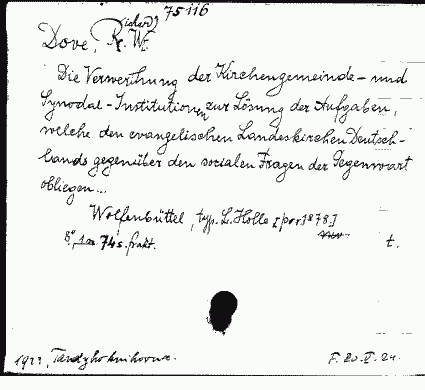 75116
Dove, R.(ichard) W.
Die Verwerthung der Kirchengemeinde- und
Synodal-Institutionen zur Lösung der Aufgaben,
welche den evangelischen Landeskirchen Deutsch-
lands gegenüber den socialen Fragen der Gegenwart
obliegen...
Wolfenbüttel, typ. L. Holle [por. 1878.]
8°, 74 s. frakt. t.
1922,
F. 20. V. 24.